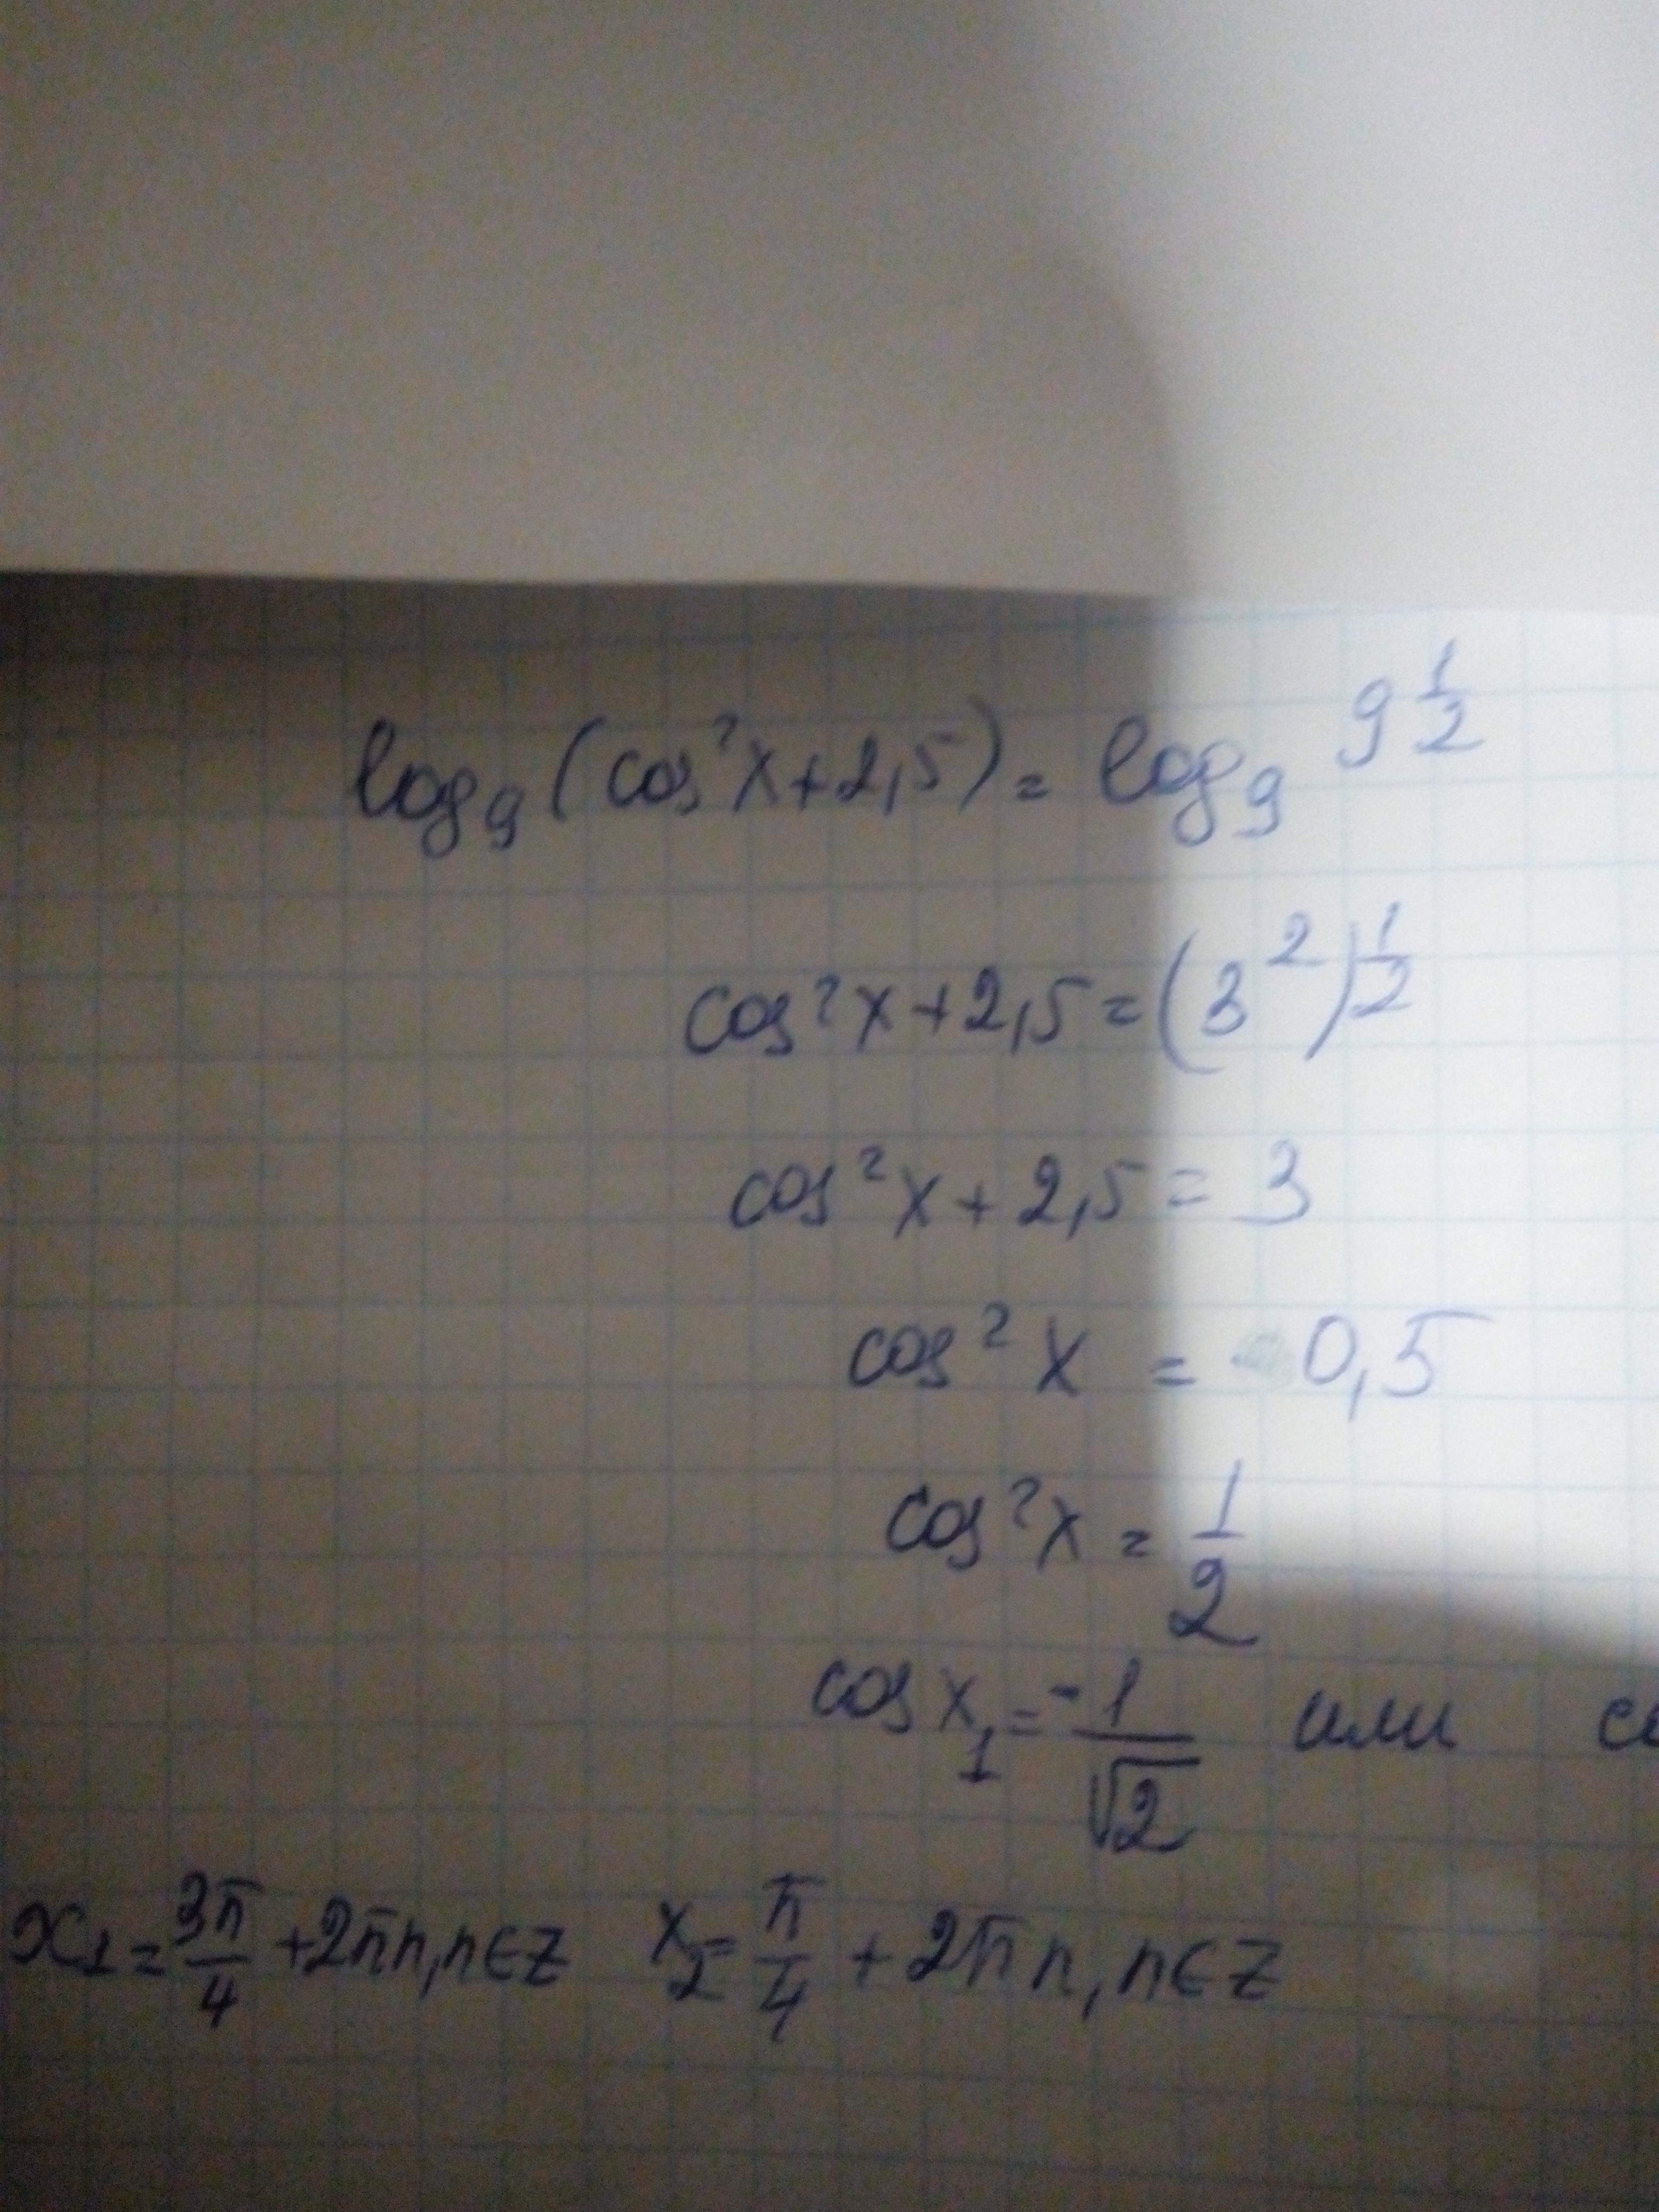 log₉(cos²x+2,5)= log₉ 9^(1/2)
cos²x+2,5=(3²)^(1/2)
cos²x+2,5=3
cos²x = 0,5
cos²x = 1/2
cos x₁ = -1/√2 или co
x₁=3π/4+2πn,n∈Z x₂=π/4+2πn,n∈Z